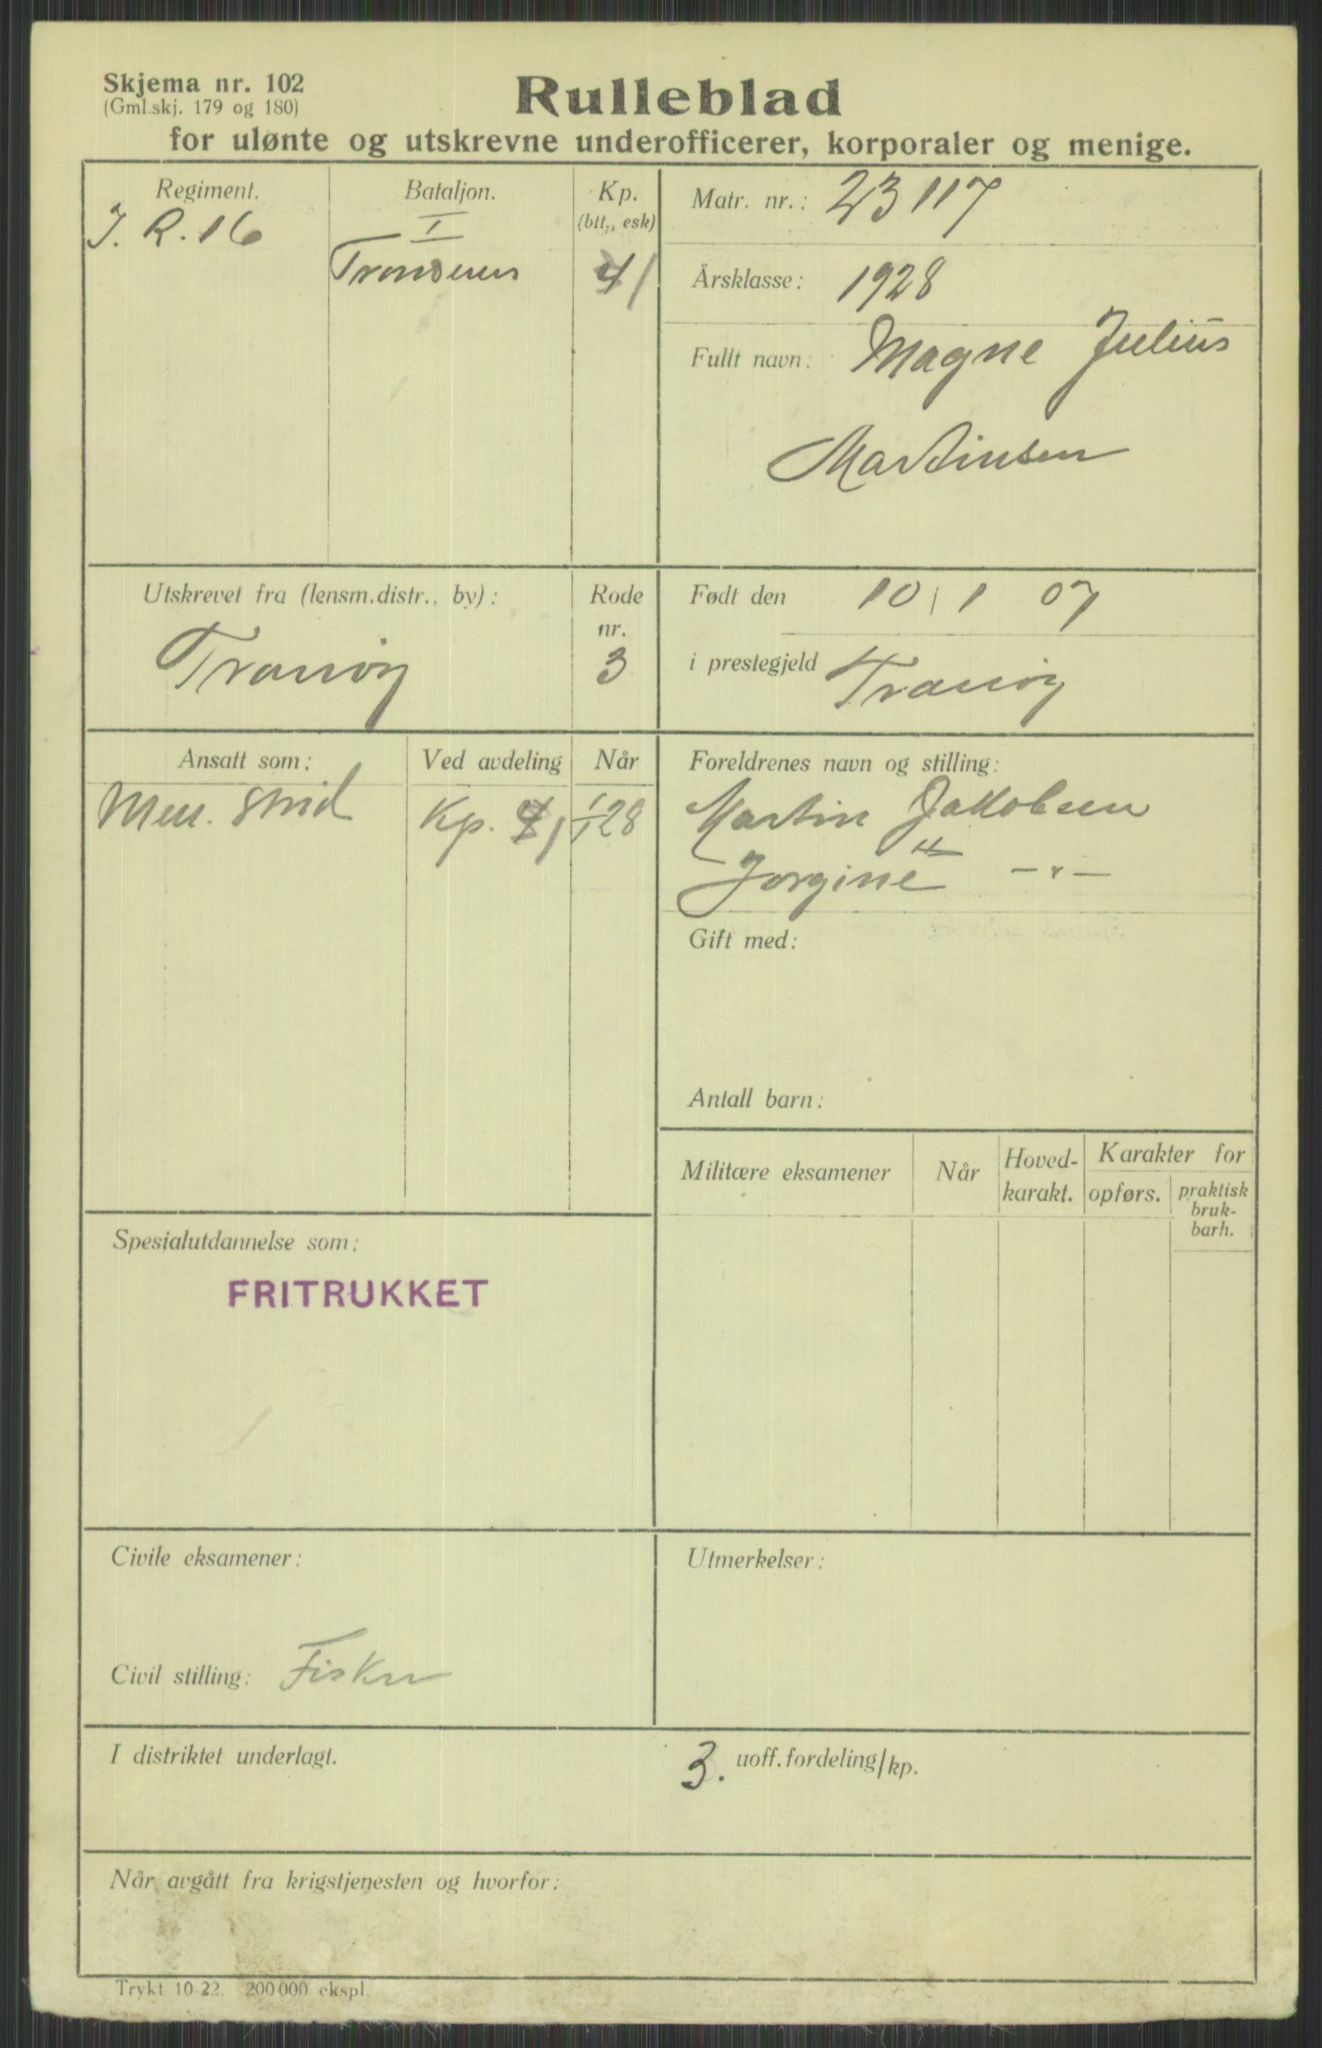 Skjema nr. 102
(Gml.skj. 179 og 180)
Rulleblad
for ulønte og utskrevne underofficerer, korporaler og menige.
Regiment.
J. R. 16
Bataljon.
I
Trondenes
Kp.
(btt., esk)
4 1
Matr. nr.: 23117
Årsklasse: 1928
Fullt navn: Magne Julius
Martinsen
Utskrevet fra (lensm.distr., by):
Tranøy
Rode
nr.
3
Født den 10 1 07
i prestegjeld Tranøy
Ansatt som:
Men. strid
Ved avdeling
Kp. 4 1
Når
1/1 28
Foreldrenes navn og stilling:
Martin Jakobsen
Jorgine " — " —
Gift med:
Antall barn:
Militære eksamener
Når
Hoved-
karakt.
Karakter for
opførs.
praktisk
bruk-
barh.
Spesialutdannelse som:
FRITRUKKET
Civile eksamener:
Civil stilling: Fisker
Utmerkelser:
I distriktet underlagt.
3. uoff.fordeling/kp.
Når avgått fra krigstjenesten og hvorfor:
Trykt 10-22. 200 000 ekspl.